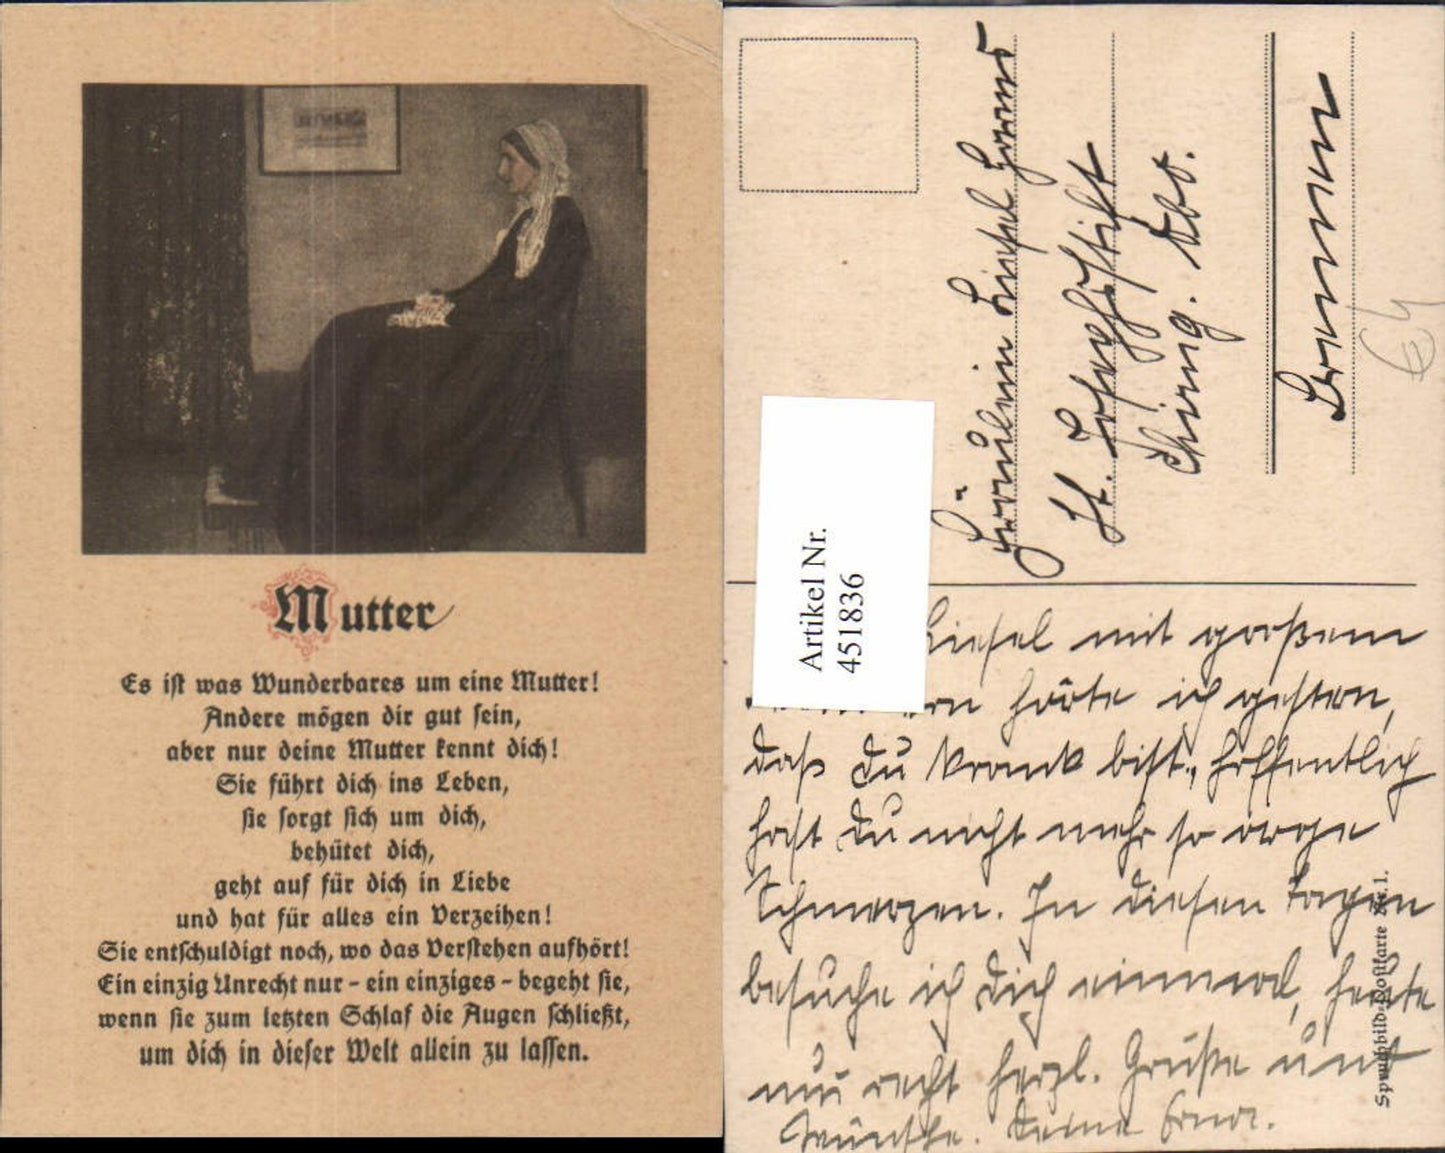 Mutter
Es ist was Wunderbares um eine Mutter!
Andere mögen dir gut sein,
aber nur deine Mutter kennt dich!
Sie führt dich ins Leben,
sie sorgt sich um dich,
behütet dich,
geht auf für dich in Liebe
und hat für alles ein Verzeihen!
Sie entschuldigt noch, wo das Verstehen aufhört!
Ein einzig Unrecht nur - ein einziges - begeht sie,
wenn sie zum letzten Schlaf die Augen schließt,
um dich in dieser Welt allein zu lassen.
Fräulein Liesel
St. Josephstift
Chirurg. Abt.
Bremen
Artikel Nr.
451836
Liesel mit großem
hörte ich gestern,
daß Du krank bist, hoffentlich
hast Du nicht mehr so arge
Schmerzen. In diesen Tagen
besuche ich Dich einmal, heute
nur recht herzl. Grüße und
Wünsche. Deine
Spruchbild-Postkarte Nr. 1.